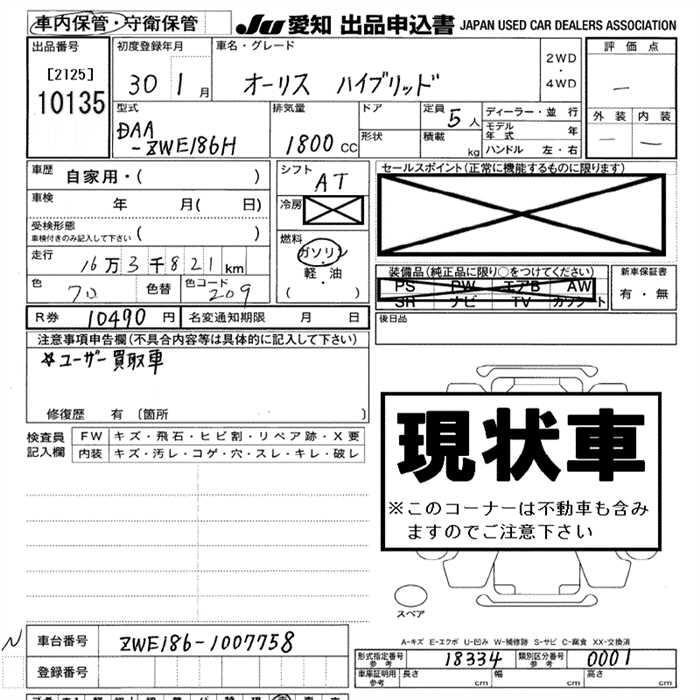 車内保管・守衛保管
JU 愛知 出品申込書 JAPAN USED CAR DEALERS ASSOCIATION
出品番号
[2125]
10135
初度登録年月
30 1月
車名・グレード
オーリス ハイブリッド
2WD
・
4WD
評価点
—
外装 内装
— —
型式
DAA
-ZWE186H
排気量
1800 CC
ドア
形状
定員 5人
積載 kg
ディーラー・並行
モデル年式 年
ハンドル 左・右
車歴 自家用・( )
車検 年 月( 日)
受検形態
車検付きのみ記入して下さい ( )
走行 16万3千821km
色 70 色替 色コード 209
シフト
AT
冷房
燃料
ガソリン
・
軽・油
( )
セールスポイント(正常に機能するものに限ります)
装備品(純正品に限り○をつけてください)
PS PW エアB AW
SR ナビ TV カワシート
新車保証書
有・無
R券 10490円 名変通知期限 月 日
後日品
注意事項申告欄(不具合内容等は具体的に記入して下さい)
☆ユーザー買取車
修復歴 有 〔箇所 〕
検査員
記入欄
FW キズ・飛石・ヒビ割・リペア跡・X要
内装 キズ・汚レ・コゲ・穴・スレ・キレ・破レ
現状車
※このコーナーは不動車も含み
ますのでご注意下さい
スペア
A-キズ E-エクボ U-凹み W-補修跡 S-サビ C-腐食 XX-交換済
N 車台番号 ZWE186-1007758
登録番号
形式指定番号
参考 18334
類別区分番号
参考 0001
車庫証明用
参考 長さ cm 幅 cm 高さ cm